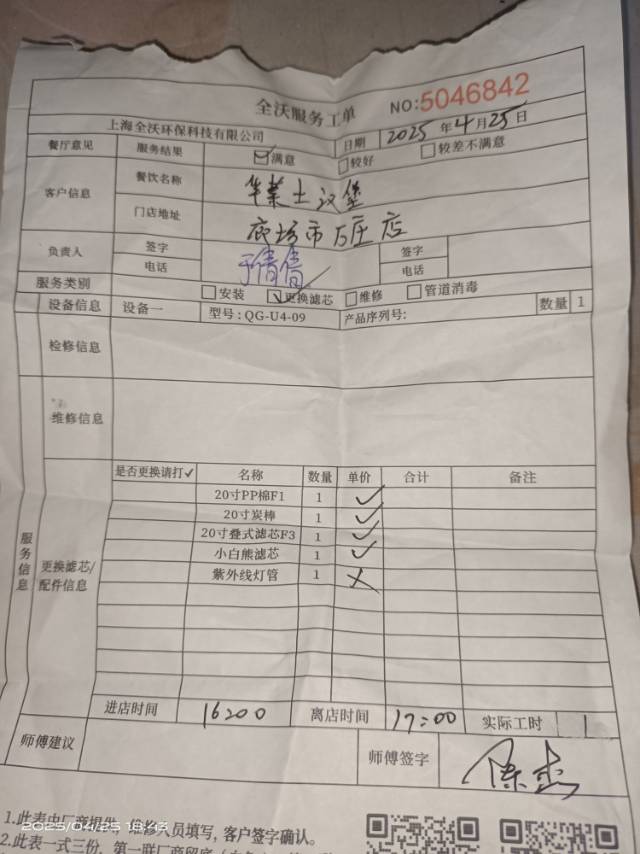 全沃服务工单 NO:5046842
上海全沃环保科技有限公司 日期 2025年4月25日
餐厅意见 服务结果 ☑满意 □较好 □较差不满意
客户信息 餐饮名称 华莱士汉堡
门店地址 廊坊市万庄店
负责人 签字 于倩倩 签字
电话 电话
服务类别 □安装 ☑更换滤芯 □维修 □管道消毒
设备信息 设备一 型号:QG-U4-09 产品序列号: 数量 1
检修信息
维修信息
服务信息 更换滤芯/配件信息
是否更换请打✓ 名称 数量 单价 合计 备注
20寸PP棉F1 1 ✓
20寸炭棒 1 ✓
20寸叠式滤芯F3 1 ✓
小白熊滤芯 1 ✓
紫外线灯管 1 ✗
进店时间 16:00 离店时间 17:00 实际工时 1
师傅建议 师傅签字 陈杰
1.此表由厂商提供,维修人员填写,客户签字确认。
2025/04/25 18:43
2.此表一式三份,第一联厂商留底